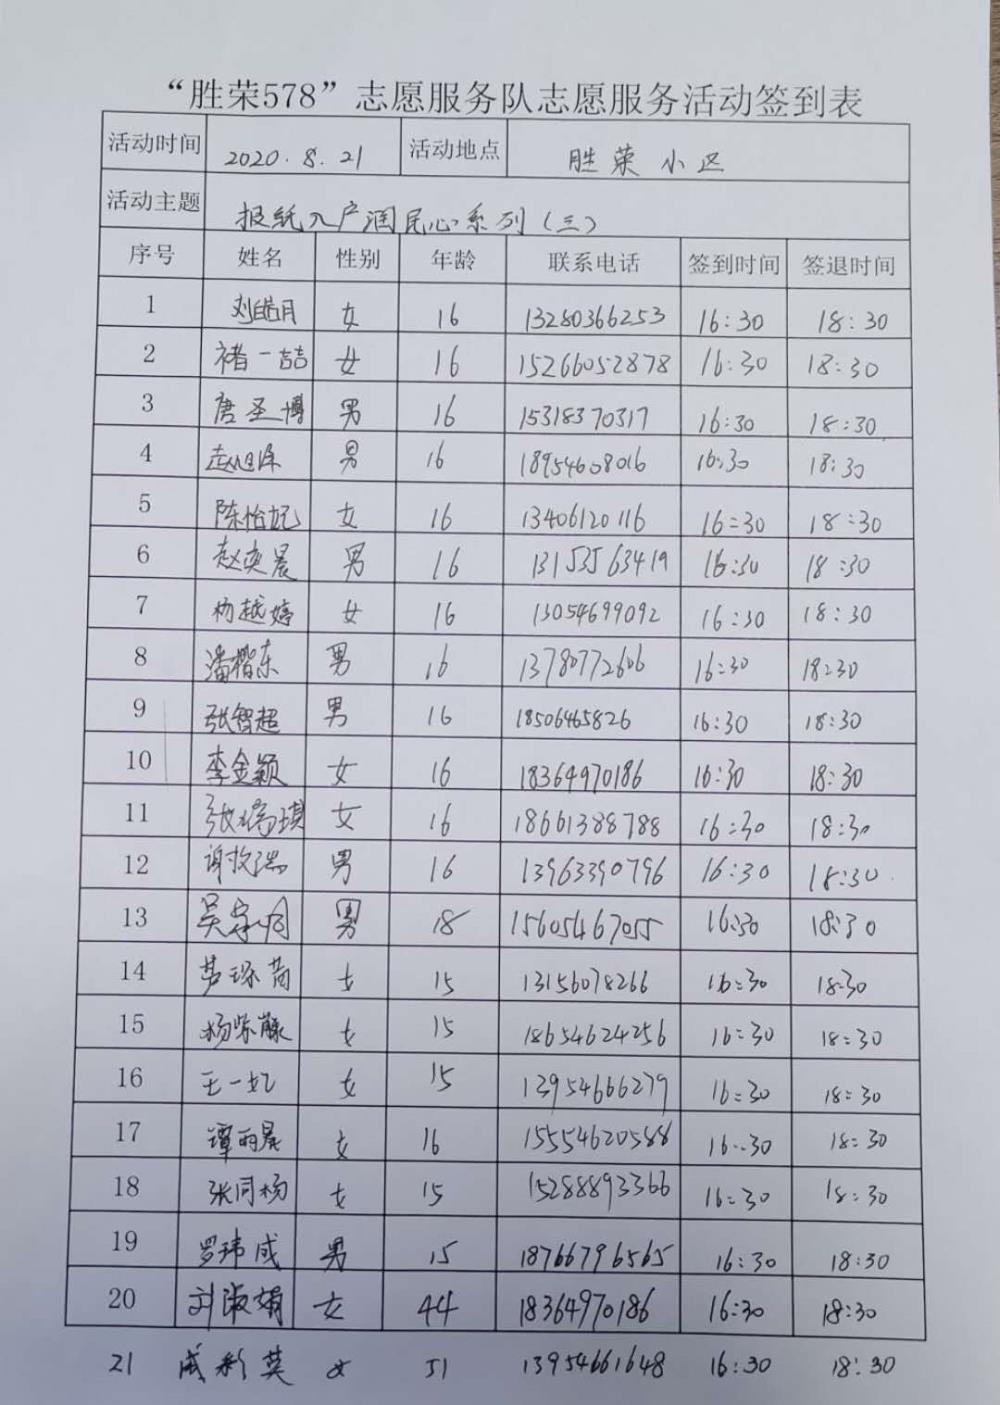 “胜荣578”志愿服务队志愿服务活动签到表
活动时间 2020.8.21 活动地点 胜荣小区
活动主题 报纸入户润民心系列(三)
序号 姓名 性别 年龄 联系电话 签到时间 签退时间
1 刘皓月 女 16 13280366253 16:30 18:30
2 褚一喆 女 16 15266052878 16:30 18:30
3 唐圣博 男 16 15318370317 16:30 18:30
4 赵旭泽 男 16 18954608016 16:30 18:30
5 陈怡妃 女 16 13406120116 16:30 18:30
6 赵奕晨 男 16 13153563419 16:30 18:30
7 杨越婷 女 16 13054699092 16:30 18:30
8 潘楷东 男 16 13780772606 16:30 18:30
9 张智超 男 16 18506465826 16:30 18:30
10 李金颖 女 16 18364970186 16:30 18:30
11 张 琪 女 16 18661388788 16:30 18:30
12 谢 瑞 男 16 13963390796 16:30 18:30
13 吴 男 18 15605467055 16:30 18:30
14 女 15 13156078266 16:30 18:30
15 杨紫藤 女 15 18654624256 16:30 18:30
16 王一妃 女 15 13954666279 16:30 18:30
17 谭雨晨 女 16 15554620588 16:30 18:30
18 张同杨 女 15 15288893366 16:30 18:30
19 罗玮成 男 15 18766796565 16:30 18:30
20 刘淑娟 女 44 18364970186 16:30 18:30
21 成彩英 女 51 13954661648 16:30 18:30